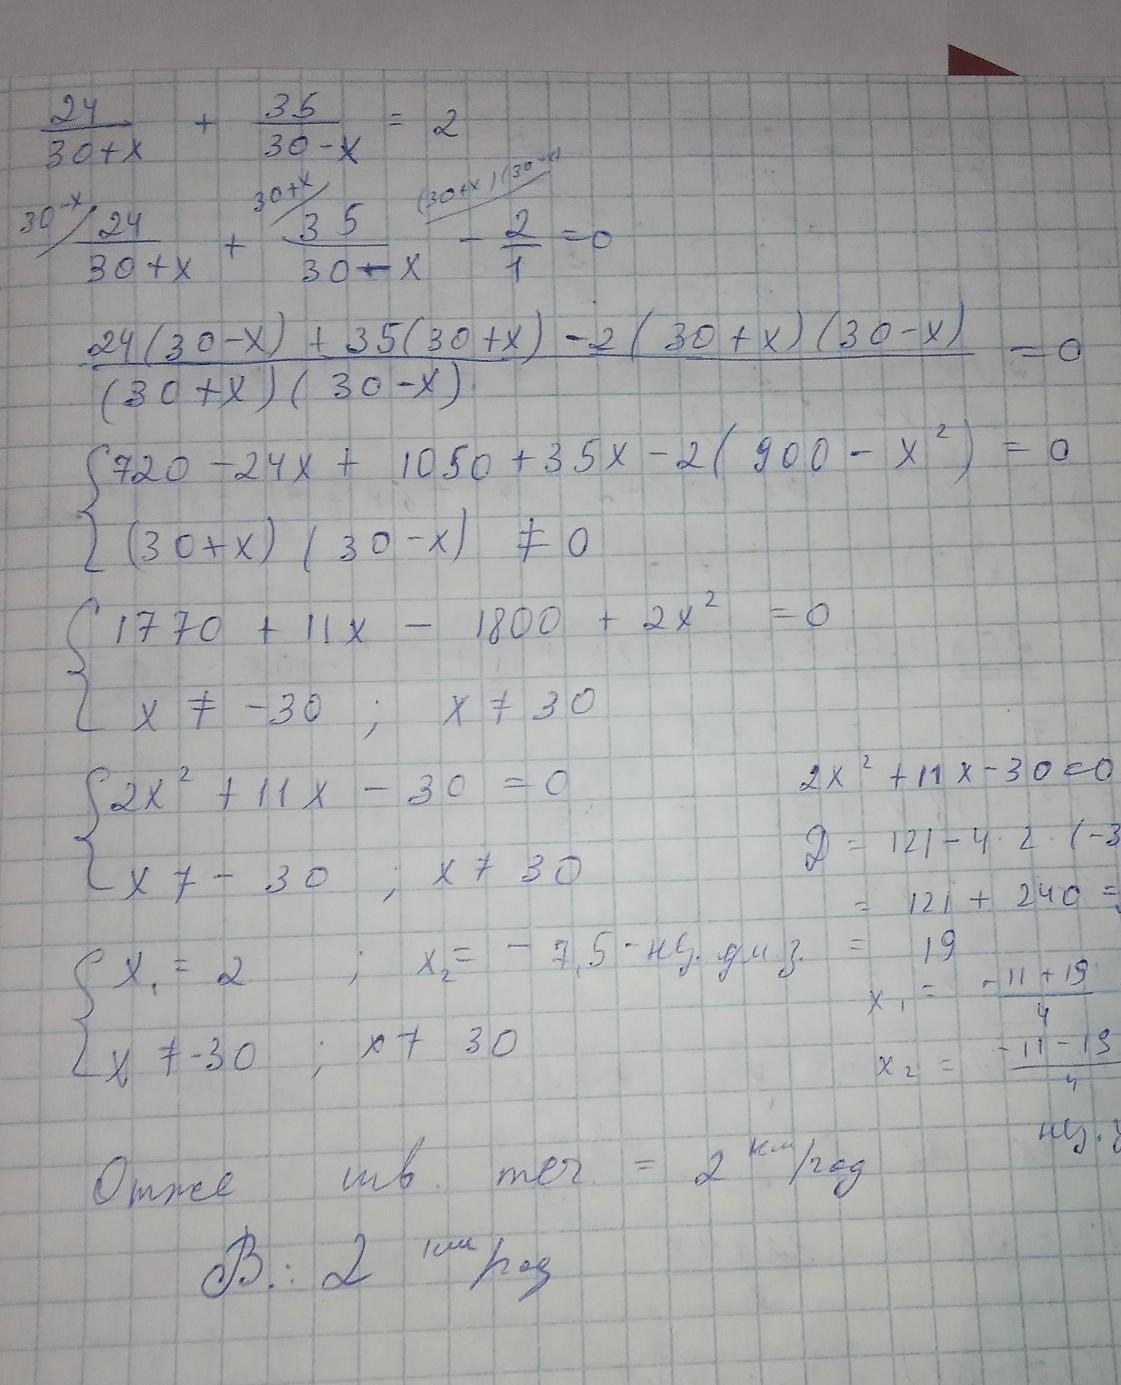 24/(30+x) + 35/(30-x) = 2
30-x/ 24/(30+x) + 30+x/ 35/(30-x) - (30+x)(30-x)/ 2/1 = 0
(24(30-x) + 35(30+x) - 2(30+x)(30-x))/((30+x)(30-x)) = 0
{ 720 - 24x + 1050 + 35x - 2(900 - x²) = 0
(30+x)(30-x) ≠ 0
{ 1770 + 11x - 1800 + 2x² = 0
x ≠ -30 ; x ≠ 30
{ 2x² + 11x - 30 = 0
x ≠ -30 ; x ≠ 30
{ x₁ = 2 ; x₂ = -7,5 -
x ≠ -30 ; x ≠ 30
2x² + 11x - 30 = 0
D = 121 - 4 · 2 · (-3
= 121 + 240 =
= 19
x₁ = (-11+19)/4
x₂ = (-11-19)/4
Отже шв. теч. = 2 км/год
В.: 2 км/год